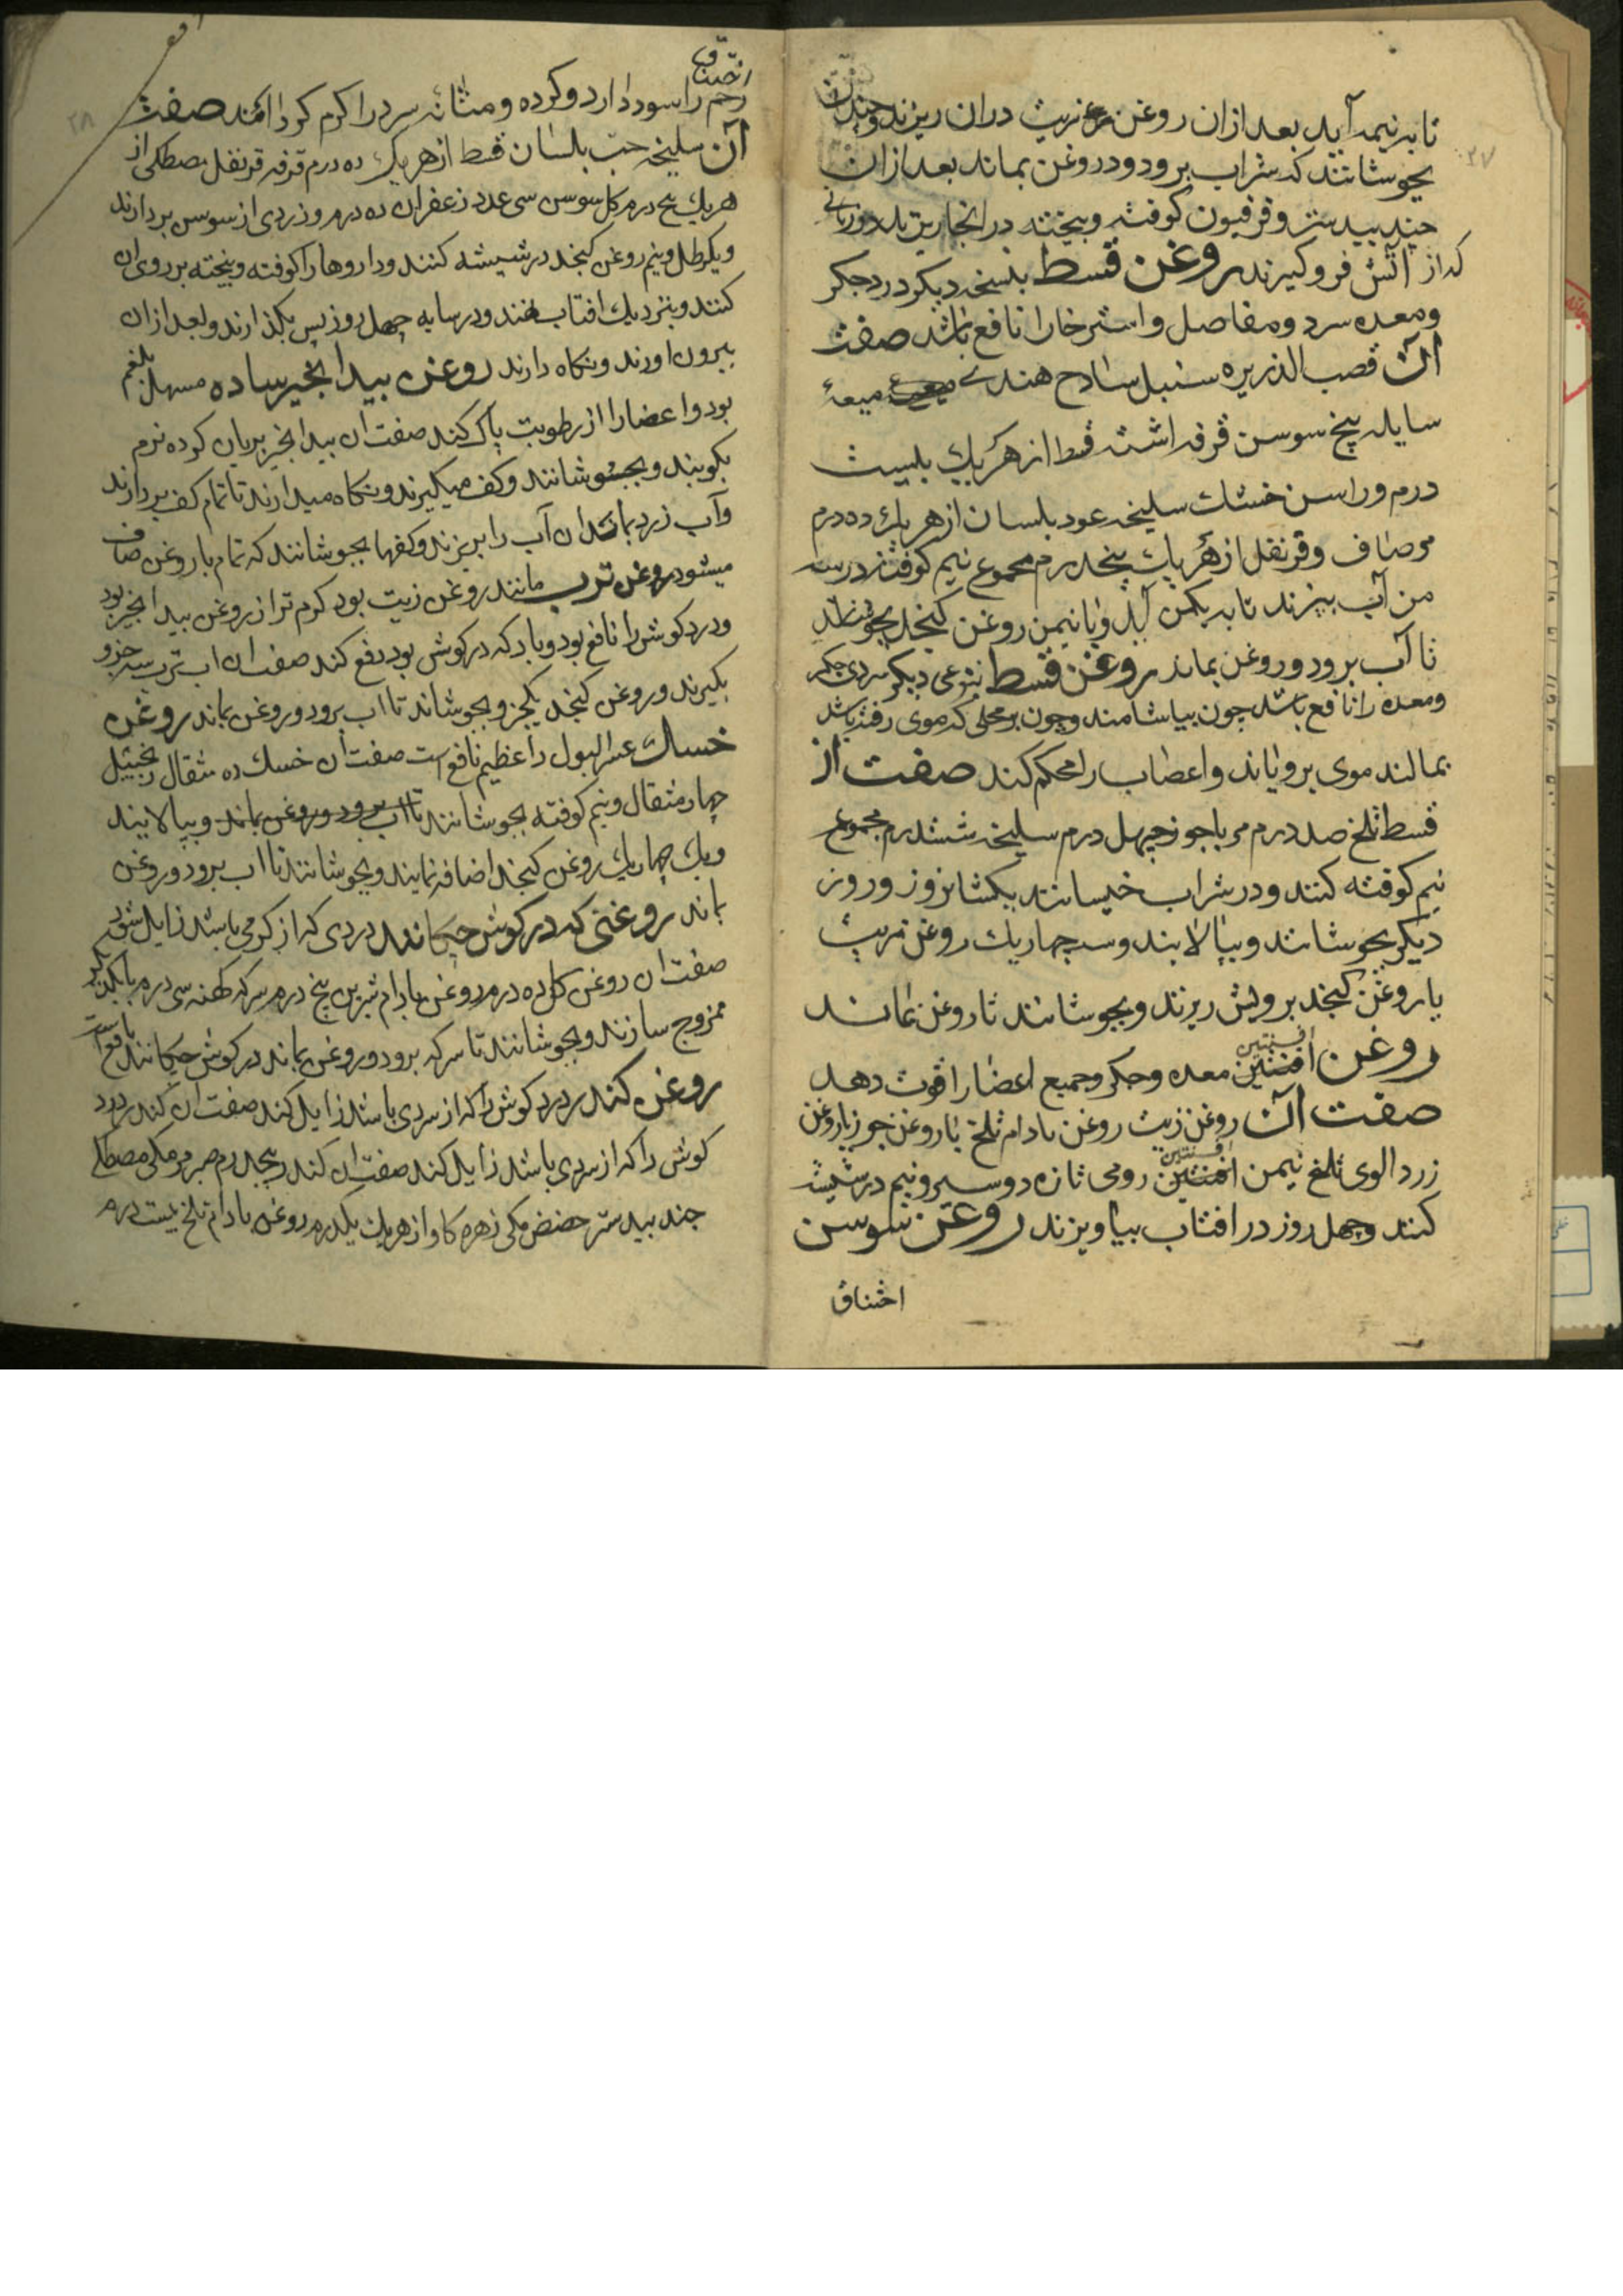 تا به نیمه آید بعد ازان روغن زیت دران ریزند و چندان
بجوشانند که شراب برود و روغن بماند بعد ازان
جندبیدستر و فرفیون کوفته و بیخته در انجا ریزند در زمانی
که از آتش فرو گیرند روغن قسط بنسخه دیگر درد جگر
و معده سرد و مفاصل و استرخا را نافع باشد صفت
آن قصب الذریره سنبل ساذج هندی میعهٔ
سایله بیخ سوسن قرفه اشنه قسط از هر یک بیست
درم و راسن خشک سلیخه عود بلسان از هر یک ده درم
مر صاف و قرنفل از هر یک پنجدرم مجموع نیم کوفته در سه
من آب بپزند تا به یکمن آید و با نیمن روغن کنجد بجوشانند
تا آب برود و روغن بماند روغن قسط بنوعی دیگر سردی جگر
و معده را نافع باشد چون بیاشامند و چون بر محلی که موی رفته باشد
بمالند موی برویاند و اعصاب را محکم کند صفت آن
قسط تلخ صد درم مر باجوز چهل درم سلیخه شش درم مجموع
نیم کوفته کنند و در شراب خیسانند یکشبانروز و روز
دیگر بجوشانند و بپالایند و سه چهاریک روغن زیت
یا روغن کنجد برویش ریزند و بجوشانند تا روغن بماند
روغن افسنتین معده و جگر و جمیع اعضا را قوت دهد
صفت آن روغن زیت روغن بادام تلخ یا روغن جوز یا روغن
زردالوی تلخ نیمن افسنتین رومی تازه دو سیر و نیم در شیشه
کنند و چهل روز در افتاب بیاویزند روغن سوسن
اختناق
۲۷
اختناق
رحم را سود دارد و گرده و مثانه سرد را گرم گرداند صفت
آن سلیخه حب بلسان قسط از هر یک ده درم قرفه قرنفل مصطکی از
هر یک پنج درم گل سوسن سی عدد زعفران ده درم و زردی از سوسن بردارند
و یکرطل و نیم روغن کنجد در شیشه کنند و داروها را کوفته و بیخته بر روی ان
کنند و بنزدیک افتاب نهند و در سایه چهل روز پس بگذارند و بعد ازان
بیرون اورند و نگاه دارند روغن بیدانجیر ساده مسهل بلغم
بود و اعضا را از رطوبت پاک کند صفت ان بیدانجیر بریان کرده نرم
بکوبند و بجوشانند و کف میگیرند و نگاه میدارند تا تمام کف بردارند
و آب زرد بماند ان آب را بریزند و کفها بجوشانند که تمام با روغن صاف
میشود روغن ترب مانند روغن زیت بود گرم تر از روغن بیدانجیر بود
و درد گوش را نافع بود و باد که در گوش بود دفع کند صفت ان اب ترب سه جزو
بگیرند و روغن کنجد یکجزو بجوشاند تا اب برود و روغن بماند روغن
خسک عسر البول را عظیم نافع است صفت ان خسک ده مثقال زنجبیل
چهار مثقال و نیم کوفته بجوشانند تا اب برود و روغن بماند و بپالایند
و یک چهاریک روغن کنجد اضافه نمایند و بجوشانند تا اب برود و روغن
بماند روغنی که در گوش چکانند دردی که از گرمی باشد زایل شود
صفت ان روغن گل ده درم روغن بادام شیرین پنج درم سرکه کهنه سی درم با یکدیگر
ممزوج سازند و بجوشانند تا سرکه برود و روغن بماند در گوش چکانند نافع است
روغن کندر درد گوش را که از سردی باشد زایل کند صفت ان کندر درد
گوش را که از سردی باشد زایل کند صفت ان کندر پنجدرم صبر مر مکی مصطکی
جندبیدستر حضض مکی زهره گاو از هر یک یکدرم روغن بادام تلخ بیست درم
۲۸